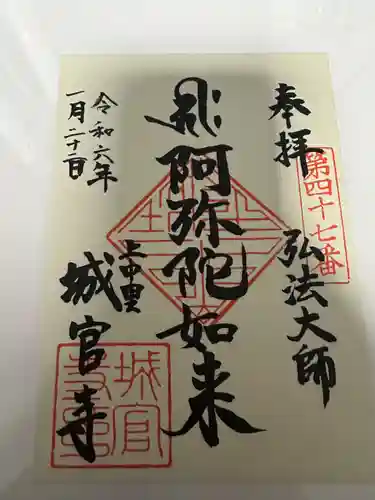 奉拝
第四十七番
弘法大師
阿弥陀如来
上中里
城官寺
令和六年
一月二十二日
城官寺